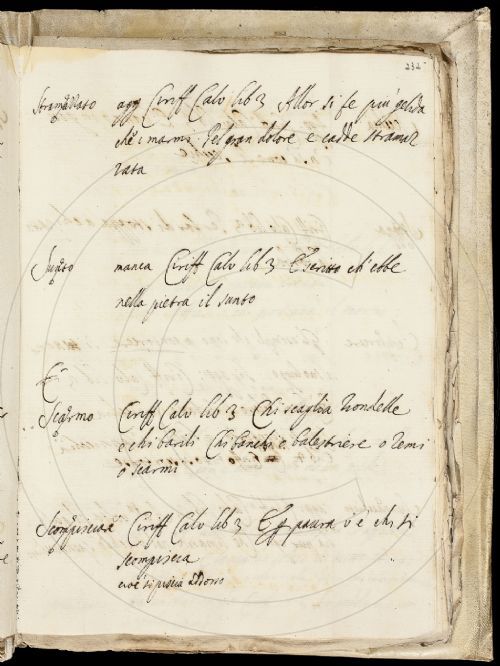 232
Stramazzato agg Ciriff Calv lib 3 Allor si fe piu gelida
che i marmi Pel gran dolore e cadde stramaz
zata
Sunto manca Ciriff Calv lib 3 E scritto ch' ebbe
nella pietra il sunto
Scarmo Ciriff Calv lib 3 Chi scaglia rondelle
e chi barili Chi banchi e balestriere o remi
o scarmi
Scompisciare Ciriff Calv lib 3 E paura v'è chi si
scompiscia
cioè si piscia addosso